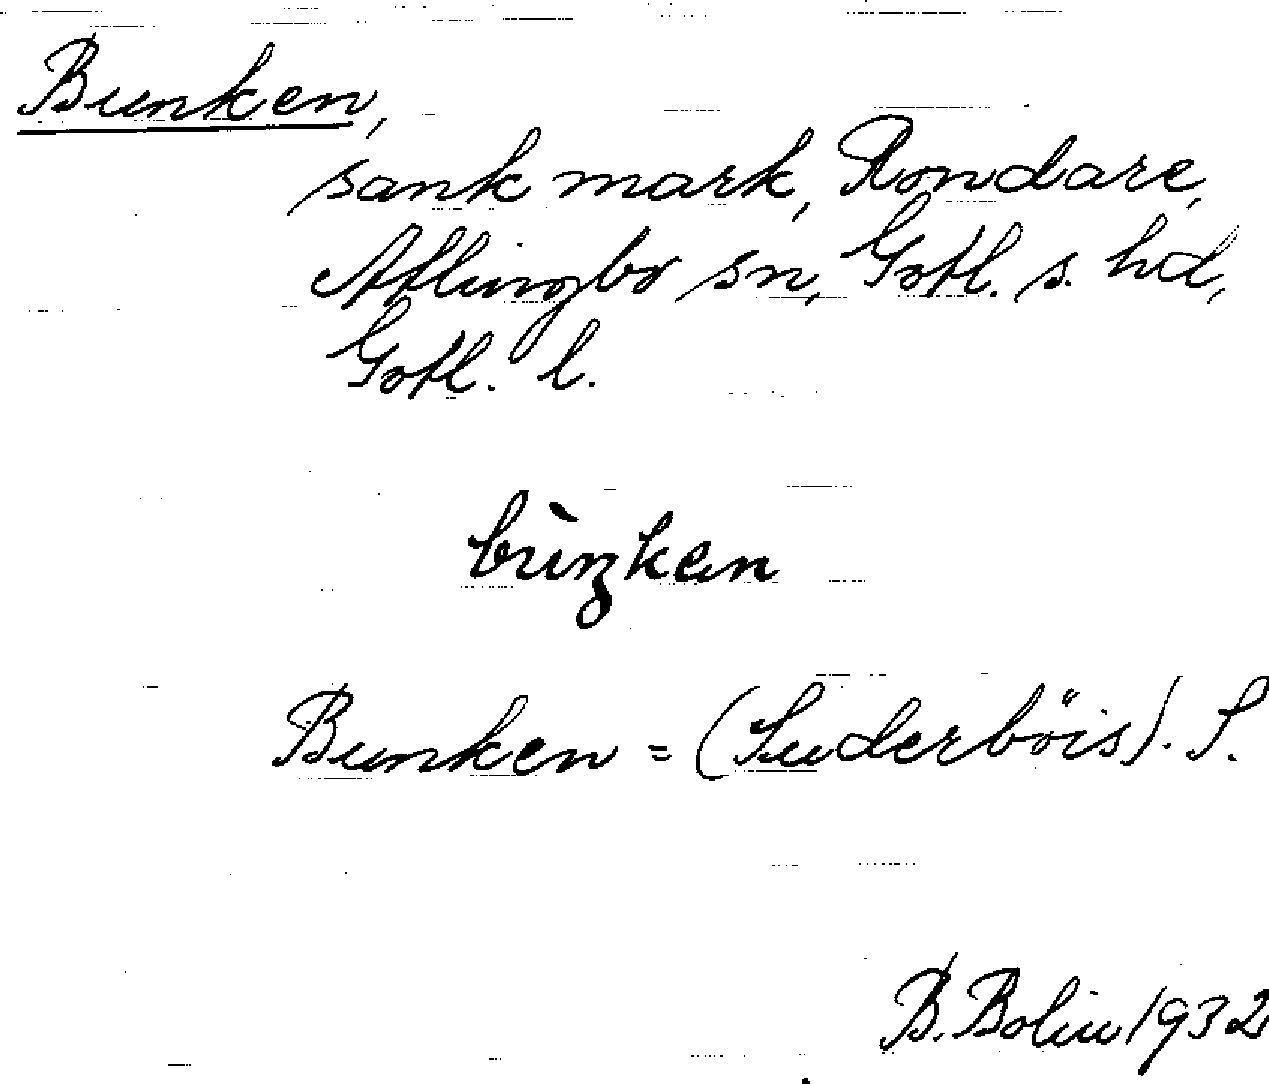 Bunken,
sank mark, Rondare,
Atlingbo sn, Gotl. s. hd,
Gotl. l.
bùŋken
Bunken = (Suderböis). S.
B. Bolin 1932